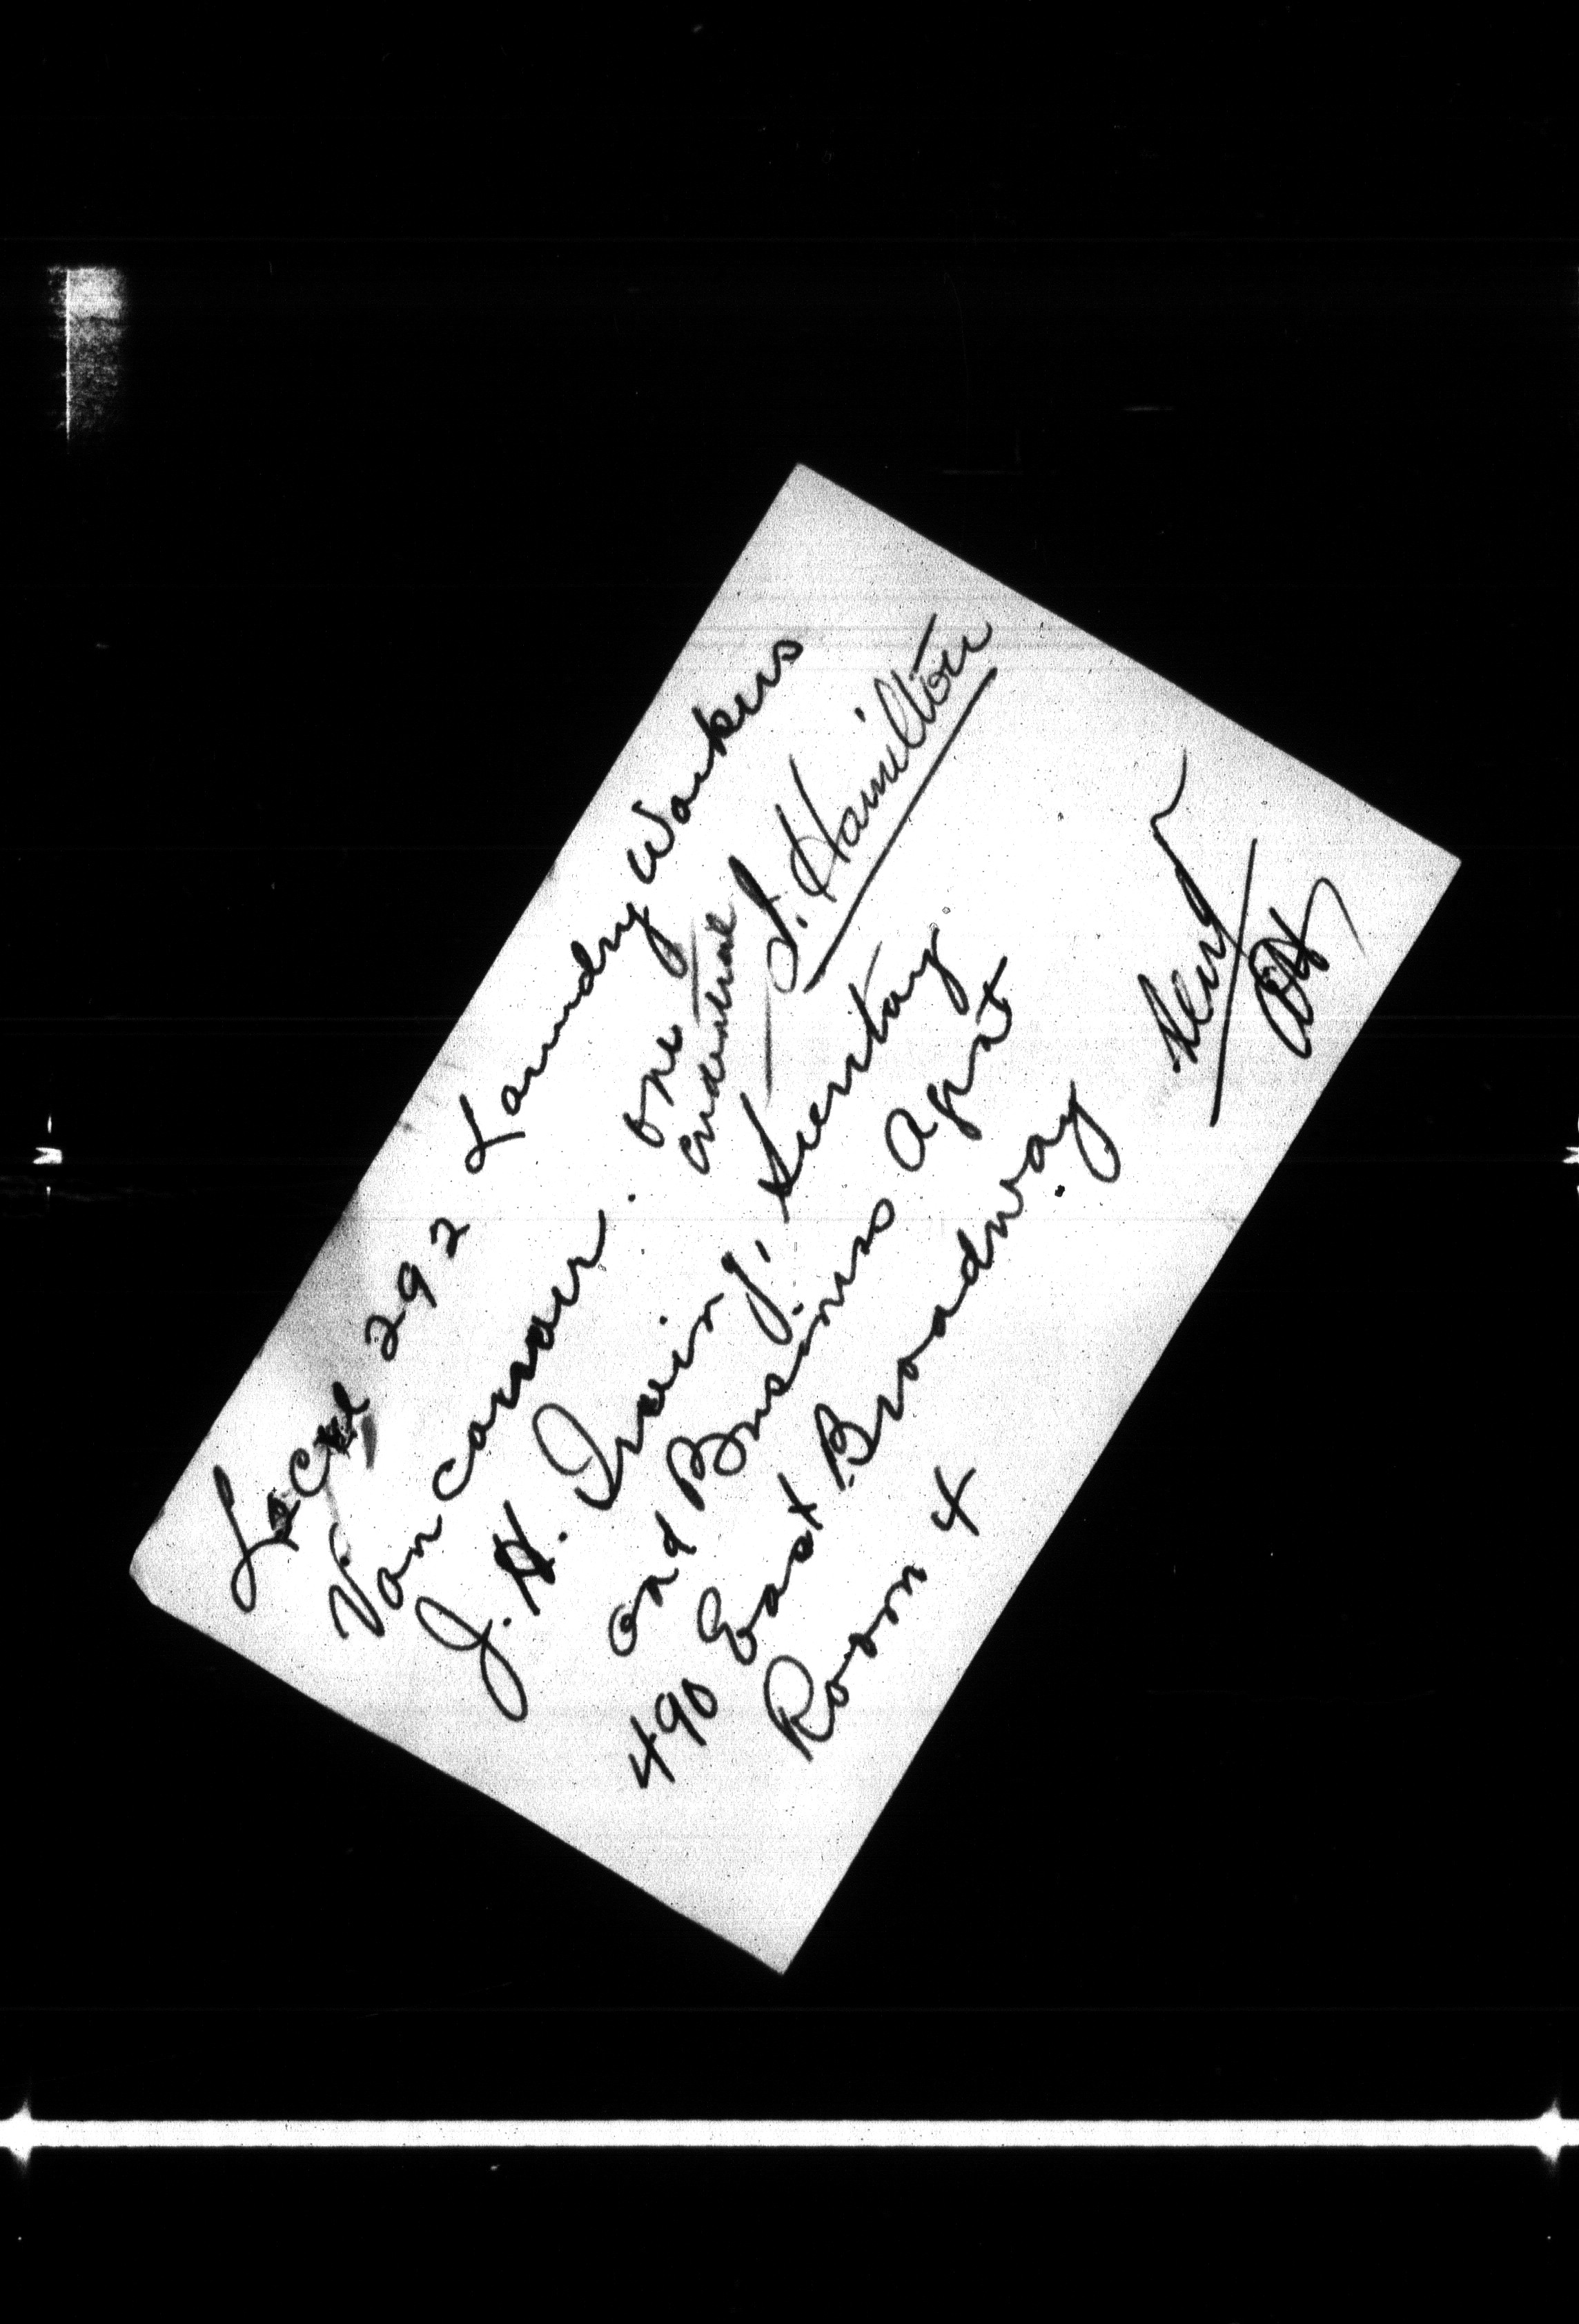 Local 292 Laundry Workers
Vancouver. one
credential J. Hamilton
J. H. Irving, Secretary
and Business Agent
490 East Broadway
Room 4